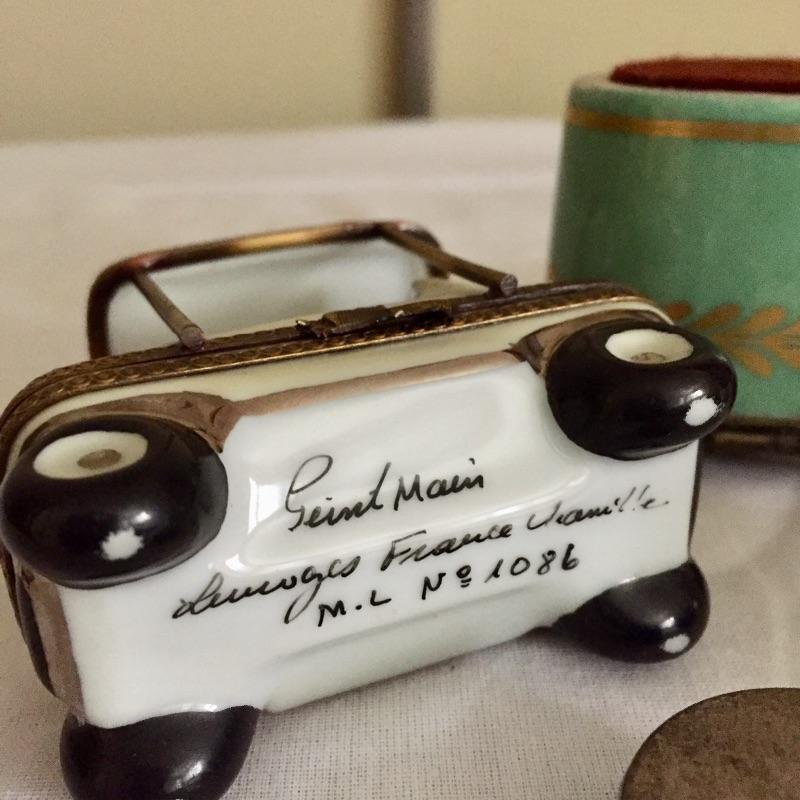 Peint Main
Limoges France Chamille
M.L Nº 1086